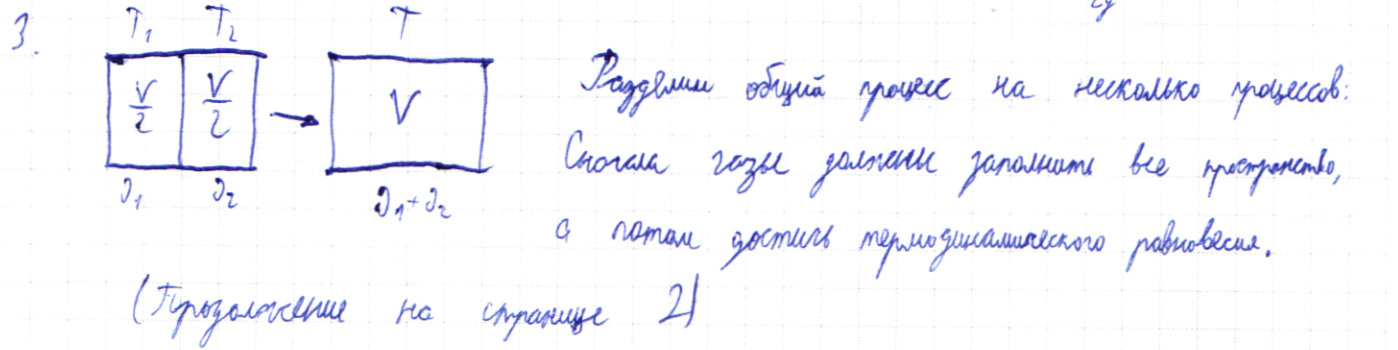 3.
T₁ T₂ T
V/2 V/2 → V
ν₁ ν₂ ν₁+ν₂
Разделим общий процесс на несколько процессов:
Сначала газы должны заполнить все пространство,
а потом достичь термодинамического равновесия.
(Продолжение на странице 2)